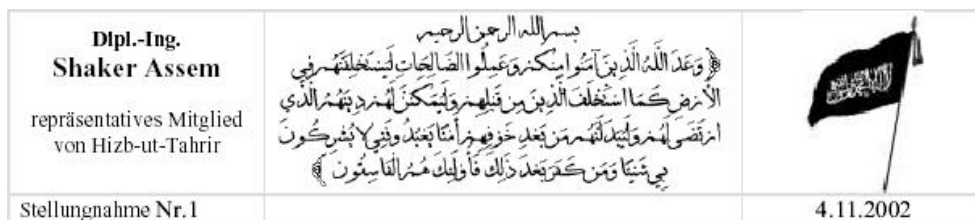 Dipl.-Ing.
Shaker Assem
repräsentatives Mitglied
von Hizb-ut-Tahrir
بسم الله الرحمن الرحيم
﴿ وَعَدَ اللَّهُ الَّذِينَ آمَنُوا مِنكُمْ وَعَمِلُوا الصَّالِحَاتِ لَيَسْتَخْلِفَنَّهُم فِي
الْأَرْضِ كَمَا اسْتَخْلَفَ الَّذِينَ مِن قَبْلِهِمْ وَلَيُمَكِّنَنَّ لَهُمْ دِينَهُمُ الَّذِي
ارْتَضَى لَهُمْ وَلَيُبَدِّلَنَّهُم مِّن بَعْدِ خَوْفِهِمْ أَمْنًا يَعْبُدُونَنِي لَا يُشْرِكُونَ
بِي شَيْئًا وَمَن كَفَرَ بَعْدَ ذَلِكَ فَأُوْلَئِكَ هُمُ الْفَاسِقُونَ ﴾
Stellungnahme Nr.1
4.11.2002